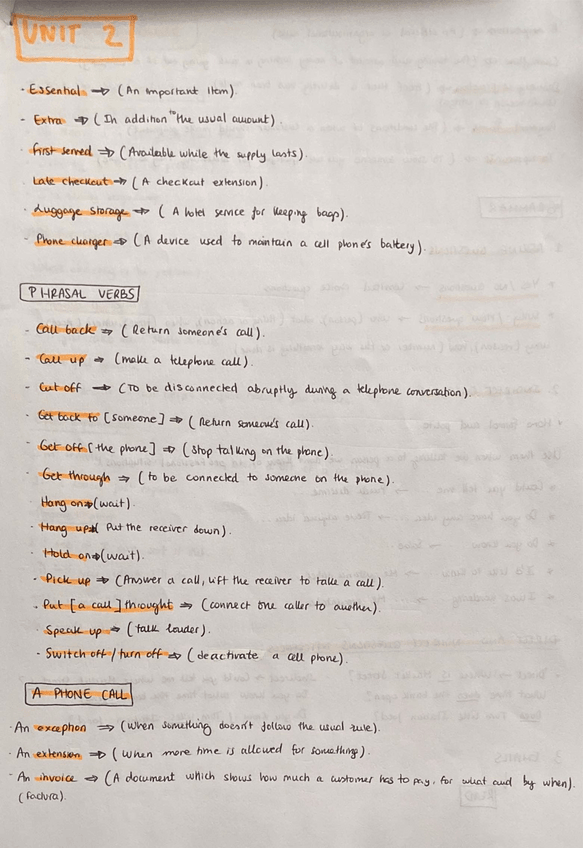 UNIT 2
- Essential → (An important item).
- Extra → (In addition to the usual amount).
- First served → (Available while the supply lasts).
- Late checkout → (A checkout extension).
- Luggage storage → (A hotel service for keeping bags).
- Phone charger → (A device used to maintain a cell phone's battery).
PHRASAL VERBS
- Call back → (Return someone's call).
- Call up → (make a telephone call).
- Cut off → (To be disconnected abruptly during a telephone conversation).
- Get back to [someone] → (Return someone's call).
- Get off [the phone] → (Stop talking on the phone).
- Get through → (to be connected to someone on the phone).
- Hang on → (wait).
- Hang up → (Put the receiver down).
- Hold on → (wait).
- Pick up → (Answer a call, lift the receiver to take a call).
- Put [a call] throught → (connect one caller to another).
- Speak up → (talk louder).
- Switch off / turn off → (deactivate a cell phone).
A PHONE CALL
- An exception → (When something doesn't follow the usual rule).
- An extension → (When more time is allowed for something).
- An invoice → (A document which shows how much a customer has to pay, for what and by when).
(factura).